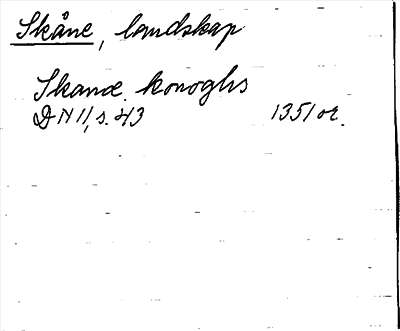 Skåne, landskap
Skanæ konoghs
DN II, s. 43 1351 or.